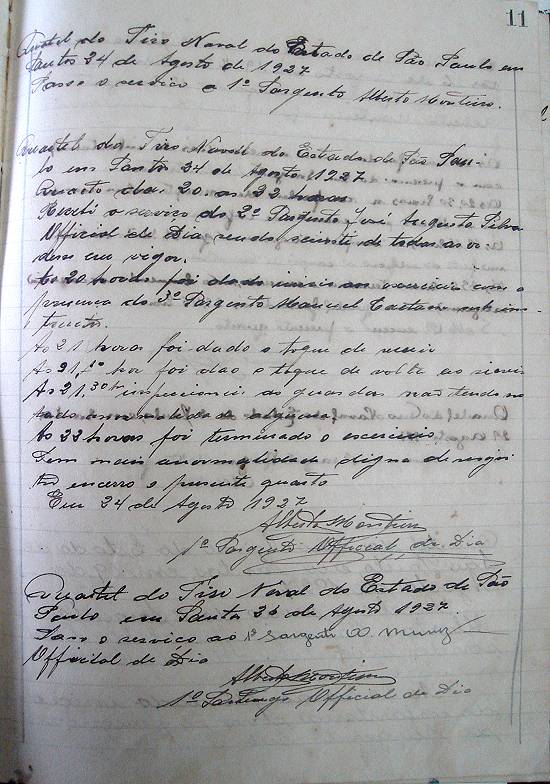 11
Quartel do Tiro Naval do Estado de São Paulo em
Santos 24 de Agosto de 1927
Passo o serviço a 1º Sargento Alberto Monteiro.
Quartel do Tiro Naval do Estado de São Pau-
lo em Santos 24 de Agosto 1927
Quarto das 20 as 22 horas
Recebi o serviço do 2º Sargento José Augusto Silva
Official de Dia sendo sciente de todas as or
dens em vigor.
As 20 horas foi dado inicio ao exercicio com a
presença do 3º Sargento Manuel Caetano
As 21 horas foi dado o toque de
As 21,10 hor foi dao o toque de volta ao
As 21.30h inspeccionei as guardas não tendo no
tado anormalidade alguma
As 22 horas foi terminado o exercicio
Sem mais anormalidade digna de regis
tro encerro o presente quarto
Em 24 de Agosto 1927
Alberto Monteiro
1º Sargento Official de Dia
Quartel do Tiro Naval do Estado de São
Paulo em Santos de Agosto 1927.
Passo o serviço ao 1º Sargento A. Muniz
Official de Dia
Alberto Monteiro
1º Sargento Official de Dia